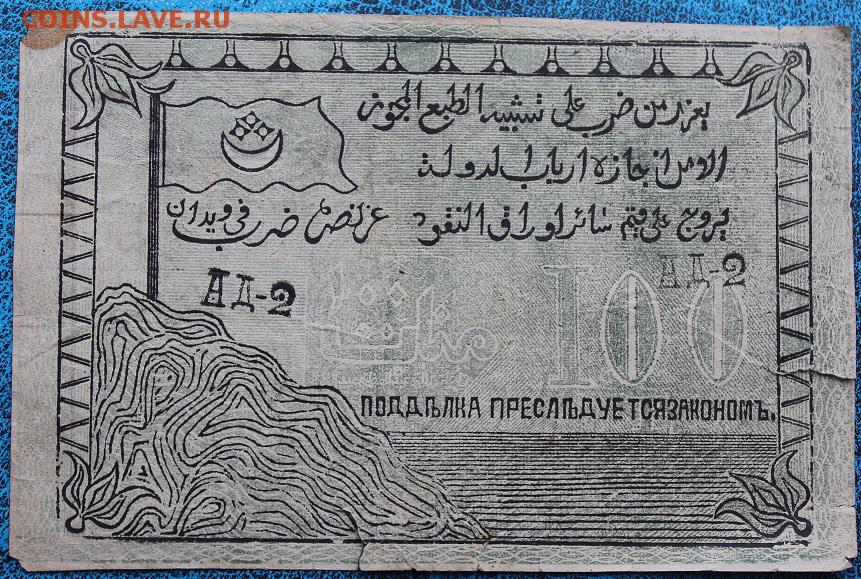 COINS.LAVE.RU
يعزر من ضرب على تشبيه الطبع المجوز
الا من اجازه ارباب الدولة
يروج على قيم سائر اوراق النقود
عز نصره ضرب في ويدان
АД-2
АД-2
منات
100
ПОДДѢЛКА ПРЕСЛѢДУЕТСЯ ЗАКОНОМЪ.